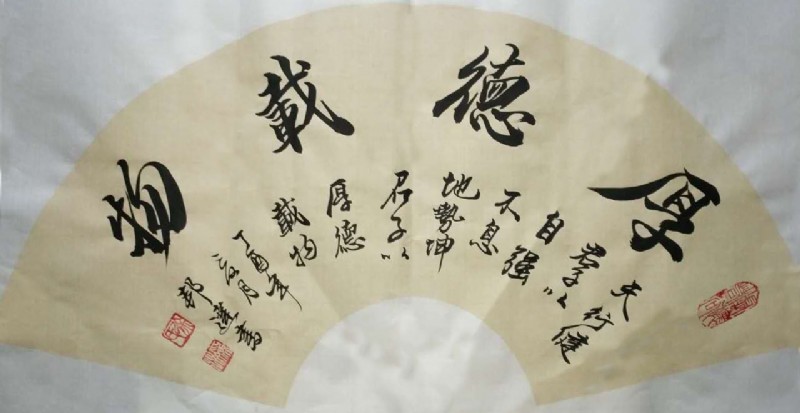 厚德載物
天行健
君子以
自强
不息
地勢坤
君子以
厚德
載物
丁酉年
月
書